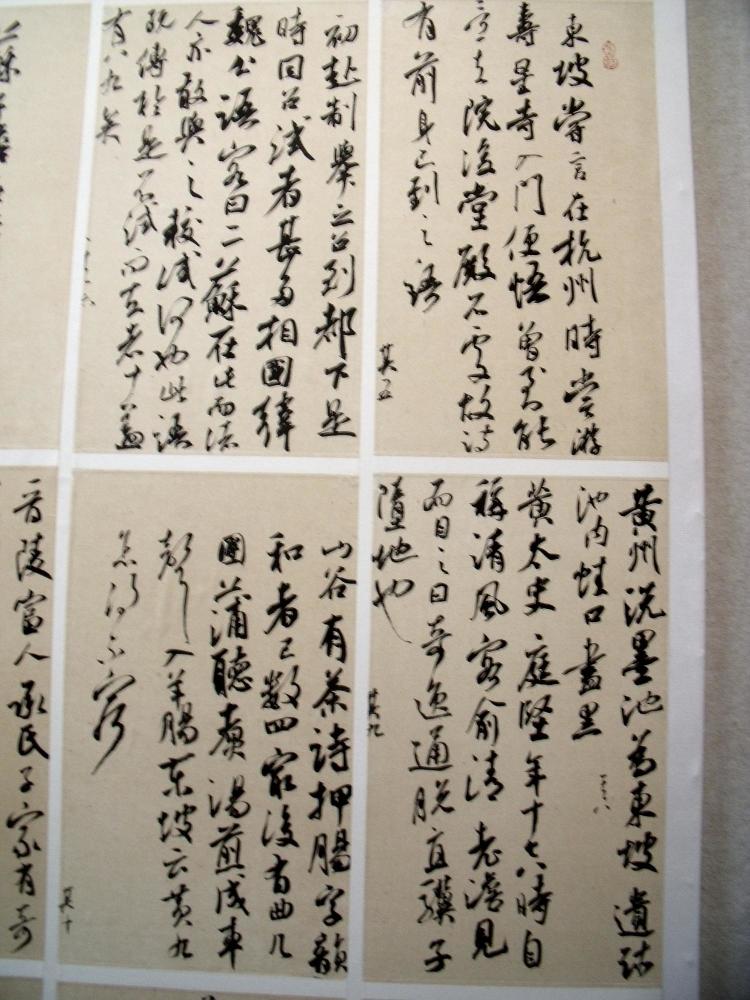 東坡嘗言在杭州時嘗游
壽星寺入門便悟曾到能
言其院後堂殿石處故詩
有前身已到之語
其五
初赴制舉之召到都下是
時同召試者甚多相國韓
魏公語客曰二蘇在此而諸
人亦敢與之較試何也此語
既傳於是不試而去者十蓋
有八九矣
其六
黃州洗墨池為東坡遺跡
池内蛙口盡黑
其八
黃太史庭堅年十七八時自
稱清風客俞清老澹見
而目之曰奇逸通脫真驥子
墮地也
其九
山谷有茶詩押腸字韻
和者已數四最後有曲几
團蒲聽煮湯煎成車
聲入羊腸東坡云黃九
怎得不窮
其十
晉陵富人承氏子家有奇